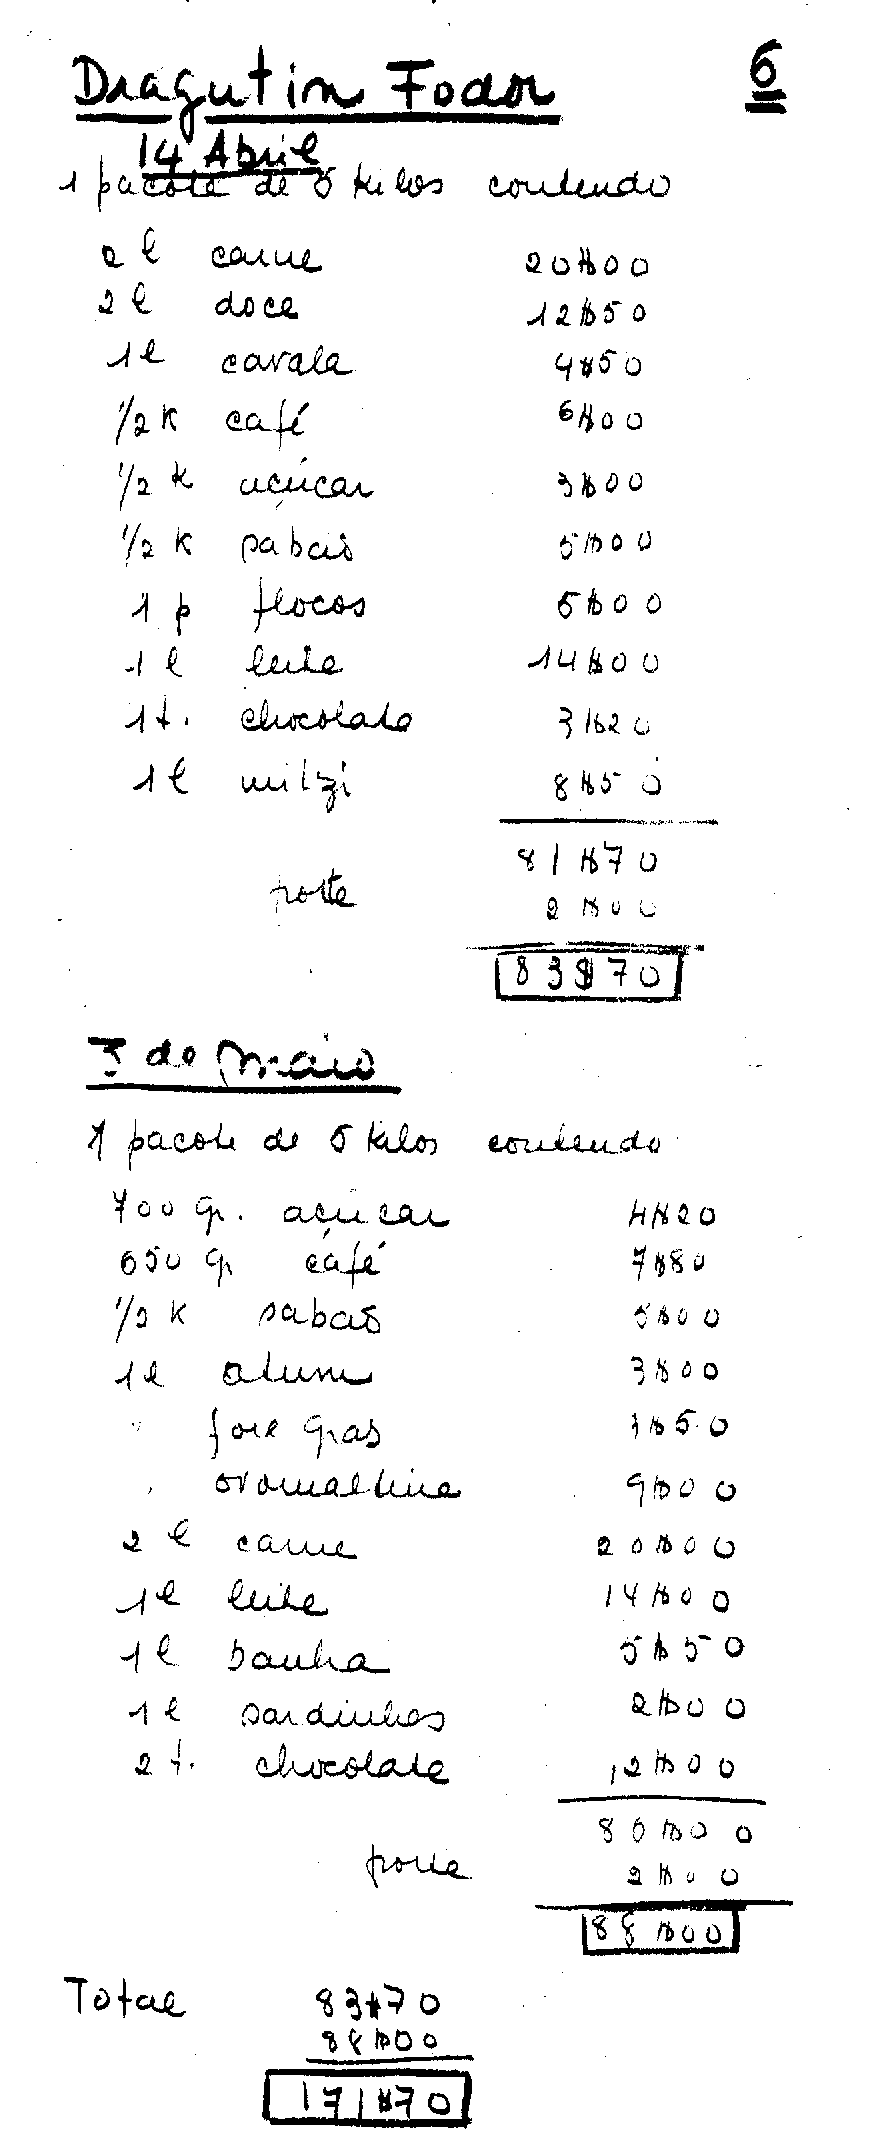 Dragutin Fodor 6
14 Abril
1 pacote de 5 kilos contendo
2 l carne 20$00
2 l doce 12$50
1 l cavala 4$50
1/2 k café 6$00
1/2 k açúcar 3$00
1/2 k sabaõ 5$00
1 p flocos 5$00
1 l leite 14$00
1 t. chocolate 3$20
1 l mitzi 8$50
81$70
porte 2$00
83$70
de Maio
1 pacote de 5 kilos contendo
700 gr. açúcar 4$20
650 gr café 7$80
1/2 k sabaõ 5$00
1 l atum 3$00
" foie gras 3$50
" ovomaltine 9$00
2 l carne 20$00
1 l leite 14$00
1 l banha 5$50
1 l sardinhas 2$00
2 t. chocolate 12$00
86$00
porte 2$00
88$00
Total 83$70
88$00
171$70